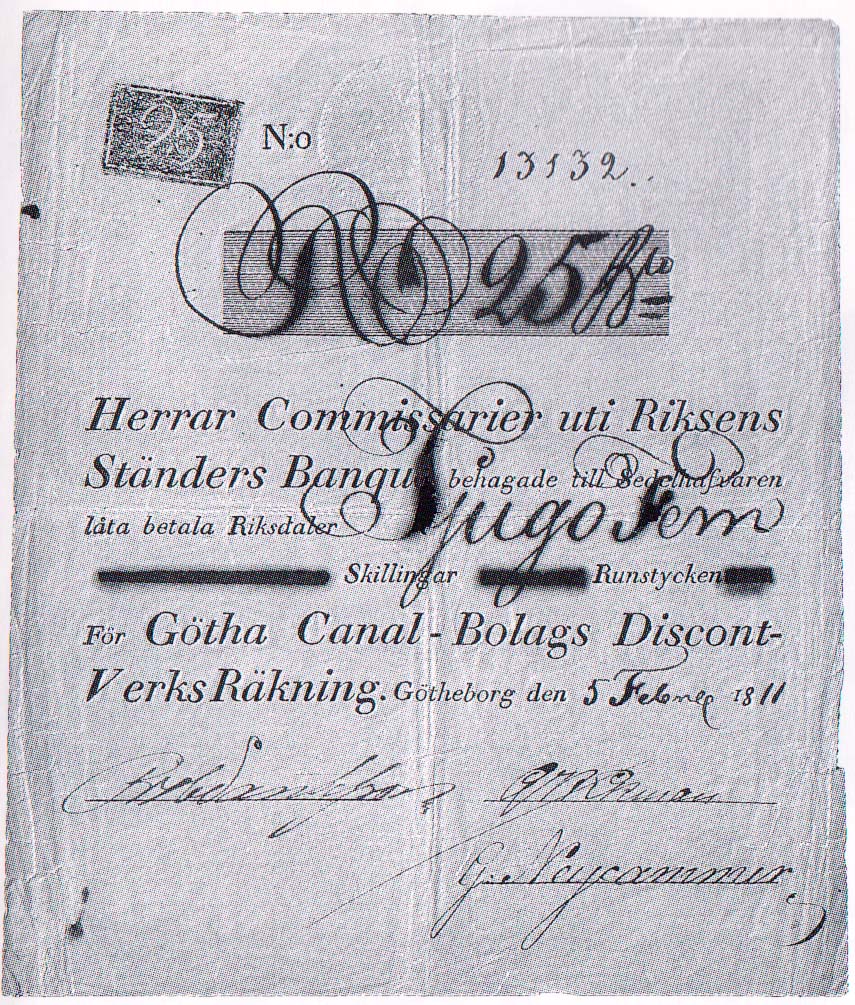 25
N:o 13132.
Rd 25 Bco
Herrar Commissarier uti Riksens
Ständers Banque behagade till Sedelhafvaren
låta betala Riksdaler Tjugo Fem
Skillingar Runstycken
För Götha Canal-Bolags Discont-
Verks Räkning. Götheborg den 5 Februa 1811